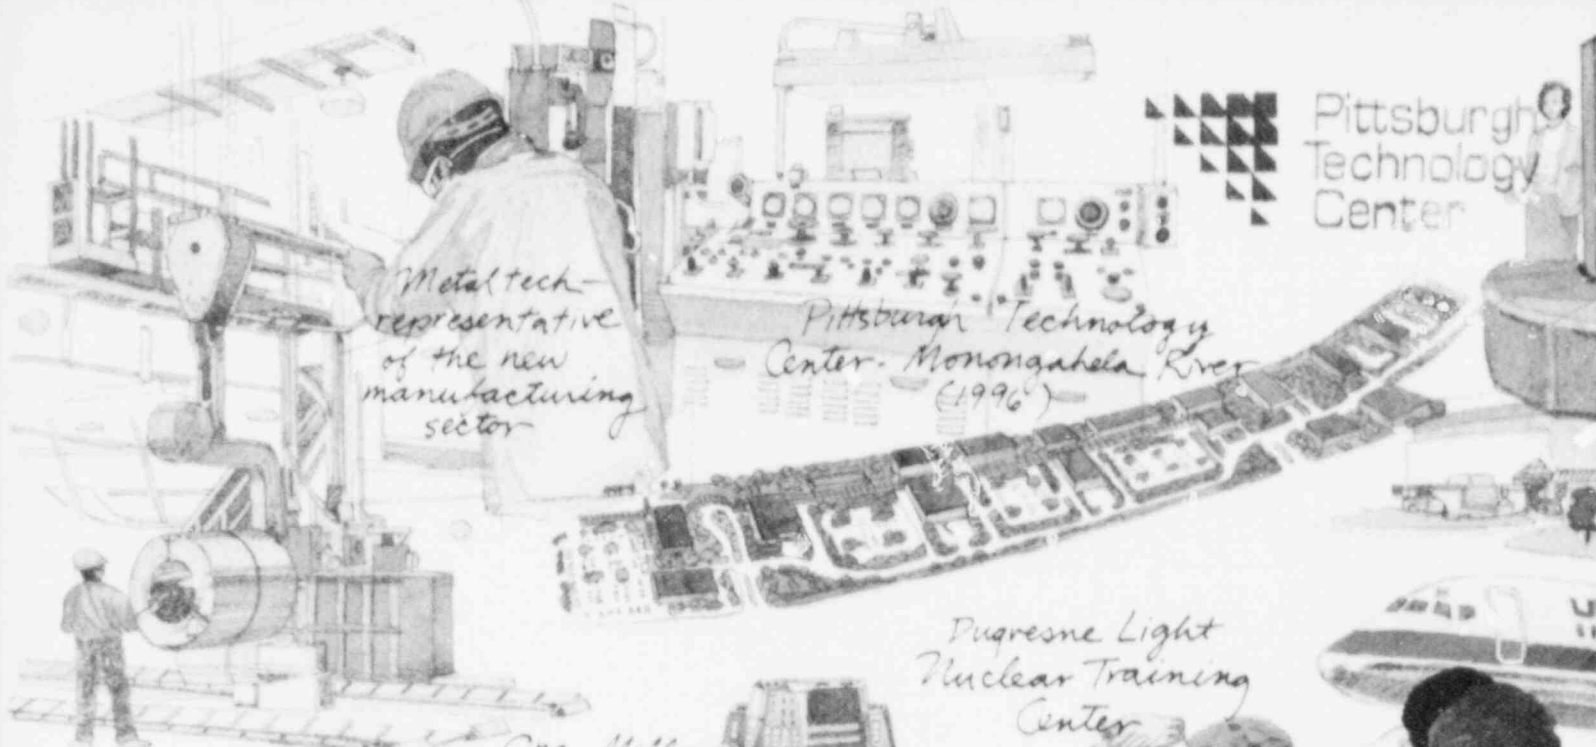 Pittsburgh
Technology
Center
Metal tech-
representative
of the new
manufacturing
sector
Pittsburgh Technology
Center - Monongahela River
(1996)
Duqresne Light
Nuclear Training
Center